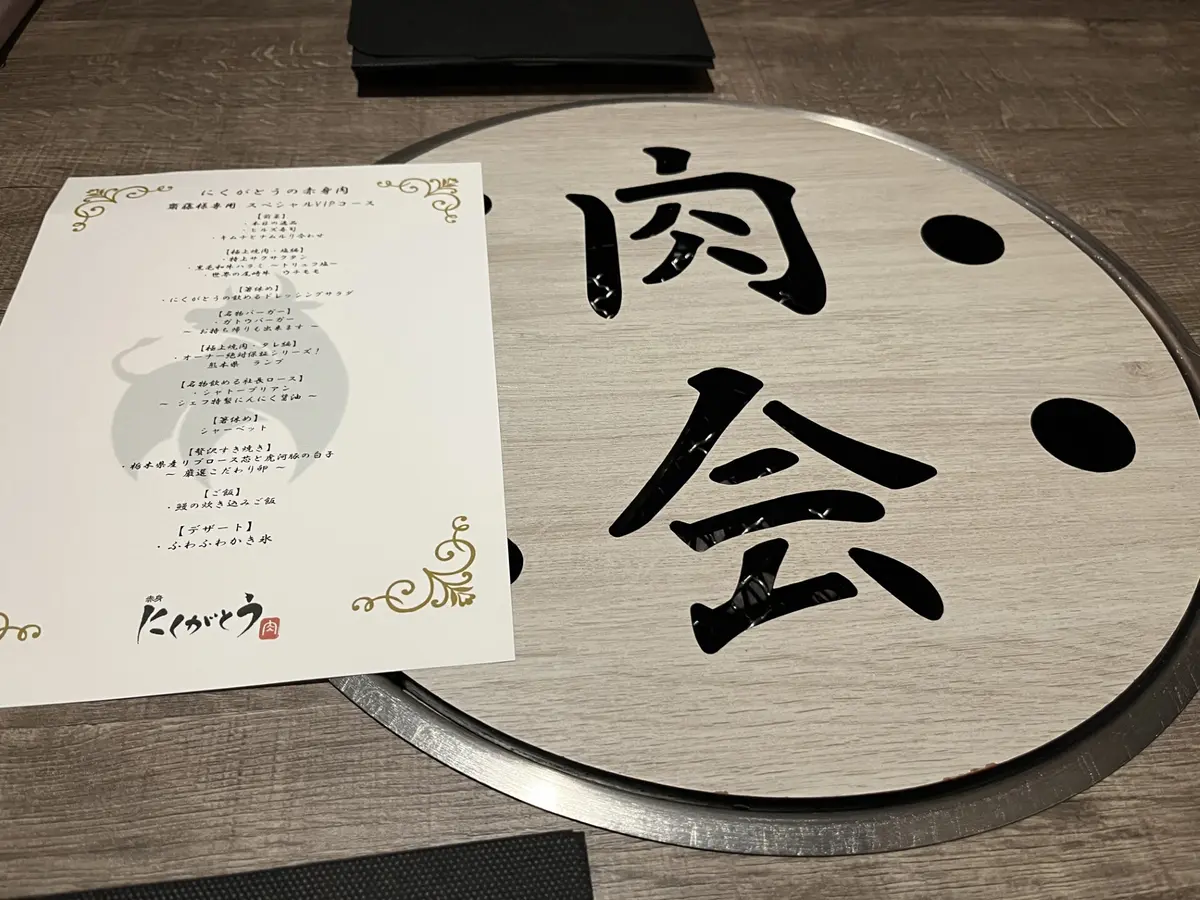 にくがとうの赤身肉
齋藤様専用 スペシャルVIPコース
【前菜】
・本日の逸品
・ヒルズ寿司
・キムチとナムル盛り合わせ
【極上焼肉・塩編】
・特上サクサクタン
・黒毛和牛ハラミ 〜トリュフ塩〜
・世界の尾崎牛 ウチモモ
【箸休め】
・にくがとうの飲めるドレッシングサラダ
【名物バーガー】
・ガトウバーガー
〜 お持ち帰りも出来ます 〜
【極上焼肉・タレ編】
・オーナー絶対保証シリーズ!
熊本県 ランプ
【名物飲める社長ロース】
・シャトーブリアン
〜 シェフ特製にんにく醤油 〜
【箸休め】
シャーベット
【贅沢すき焼き】
・栃木県産リブロース芯と虎河豚の白子
〜 厳選こだわり卵 〜
【ご飯】
・鰻の炊き込みご飯
【デザート】
・ふわふわかき氷
赤身
にくがとう
肉
肉
会